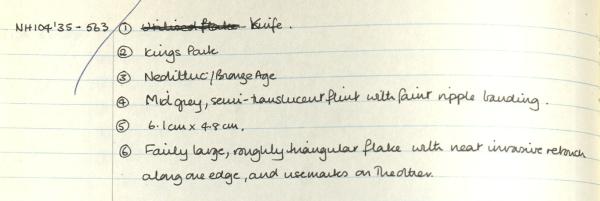 NH104'35-563 ① Utilised flake Knife.
② Kings Park
③ Neolithic/Bronze Age
④ Mid grey, semi-translucent flint with faint ripple banding.
⑤ 6.1cm x 4.8cm.
⑥ Fairly large, roughly triangular flake with neat invasive retouch
along one edge, and use marks on the other.